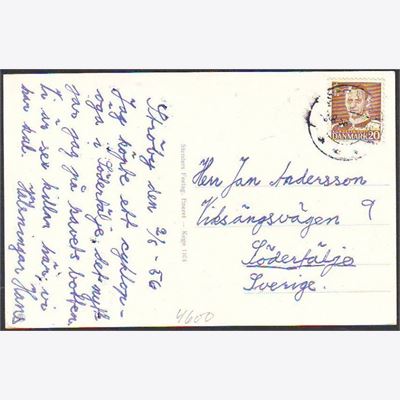 Ströby den 2/8 - 56
Jag köpte ett cyklop-
öga i Södertälje, det nytt-
jar jag på havets botten.
Vi är sex killar här, vi
har kul. Hälsningar Hans
Stenders Forlag. Eneret — Køge 1104
DANMARK 20
Herr Jan Andersson
Viksängsvägen 9
Södertälje
Sverige.
4600